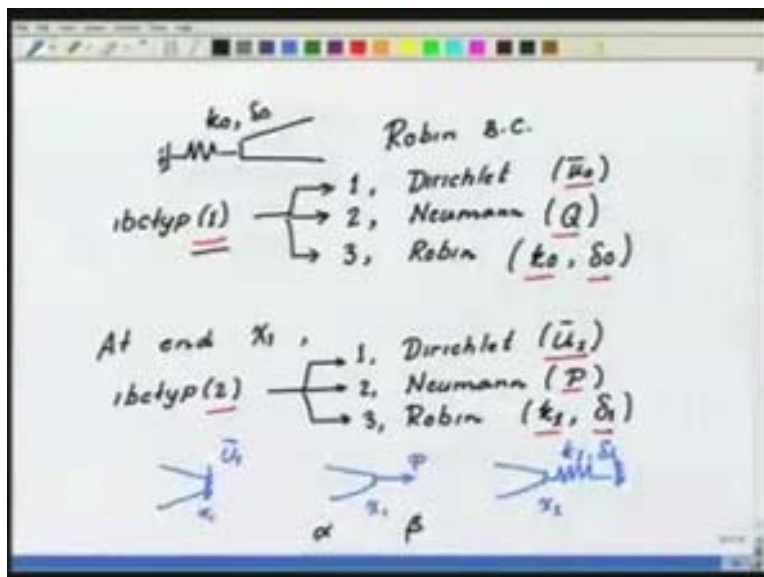 k₀, δ₀
Robin B.C.
ibctyp(1)
1, Dirichlet (ū₀)
2, Neumann (Q)
3, Robin (k₀, δ₀)
At end x₁,
ibctyp(2)
1. Dirichlet (ū₁)
2, Neumann (P)
3, Robin (k₁, δ₁)
ū₁ P k₁, δ₁
x₁ x₁ x₁
α β